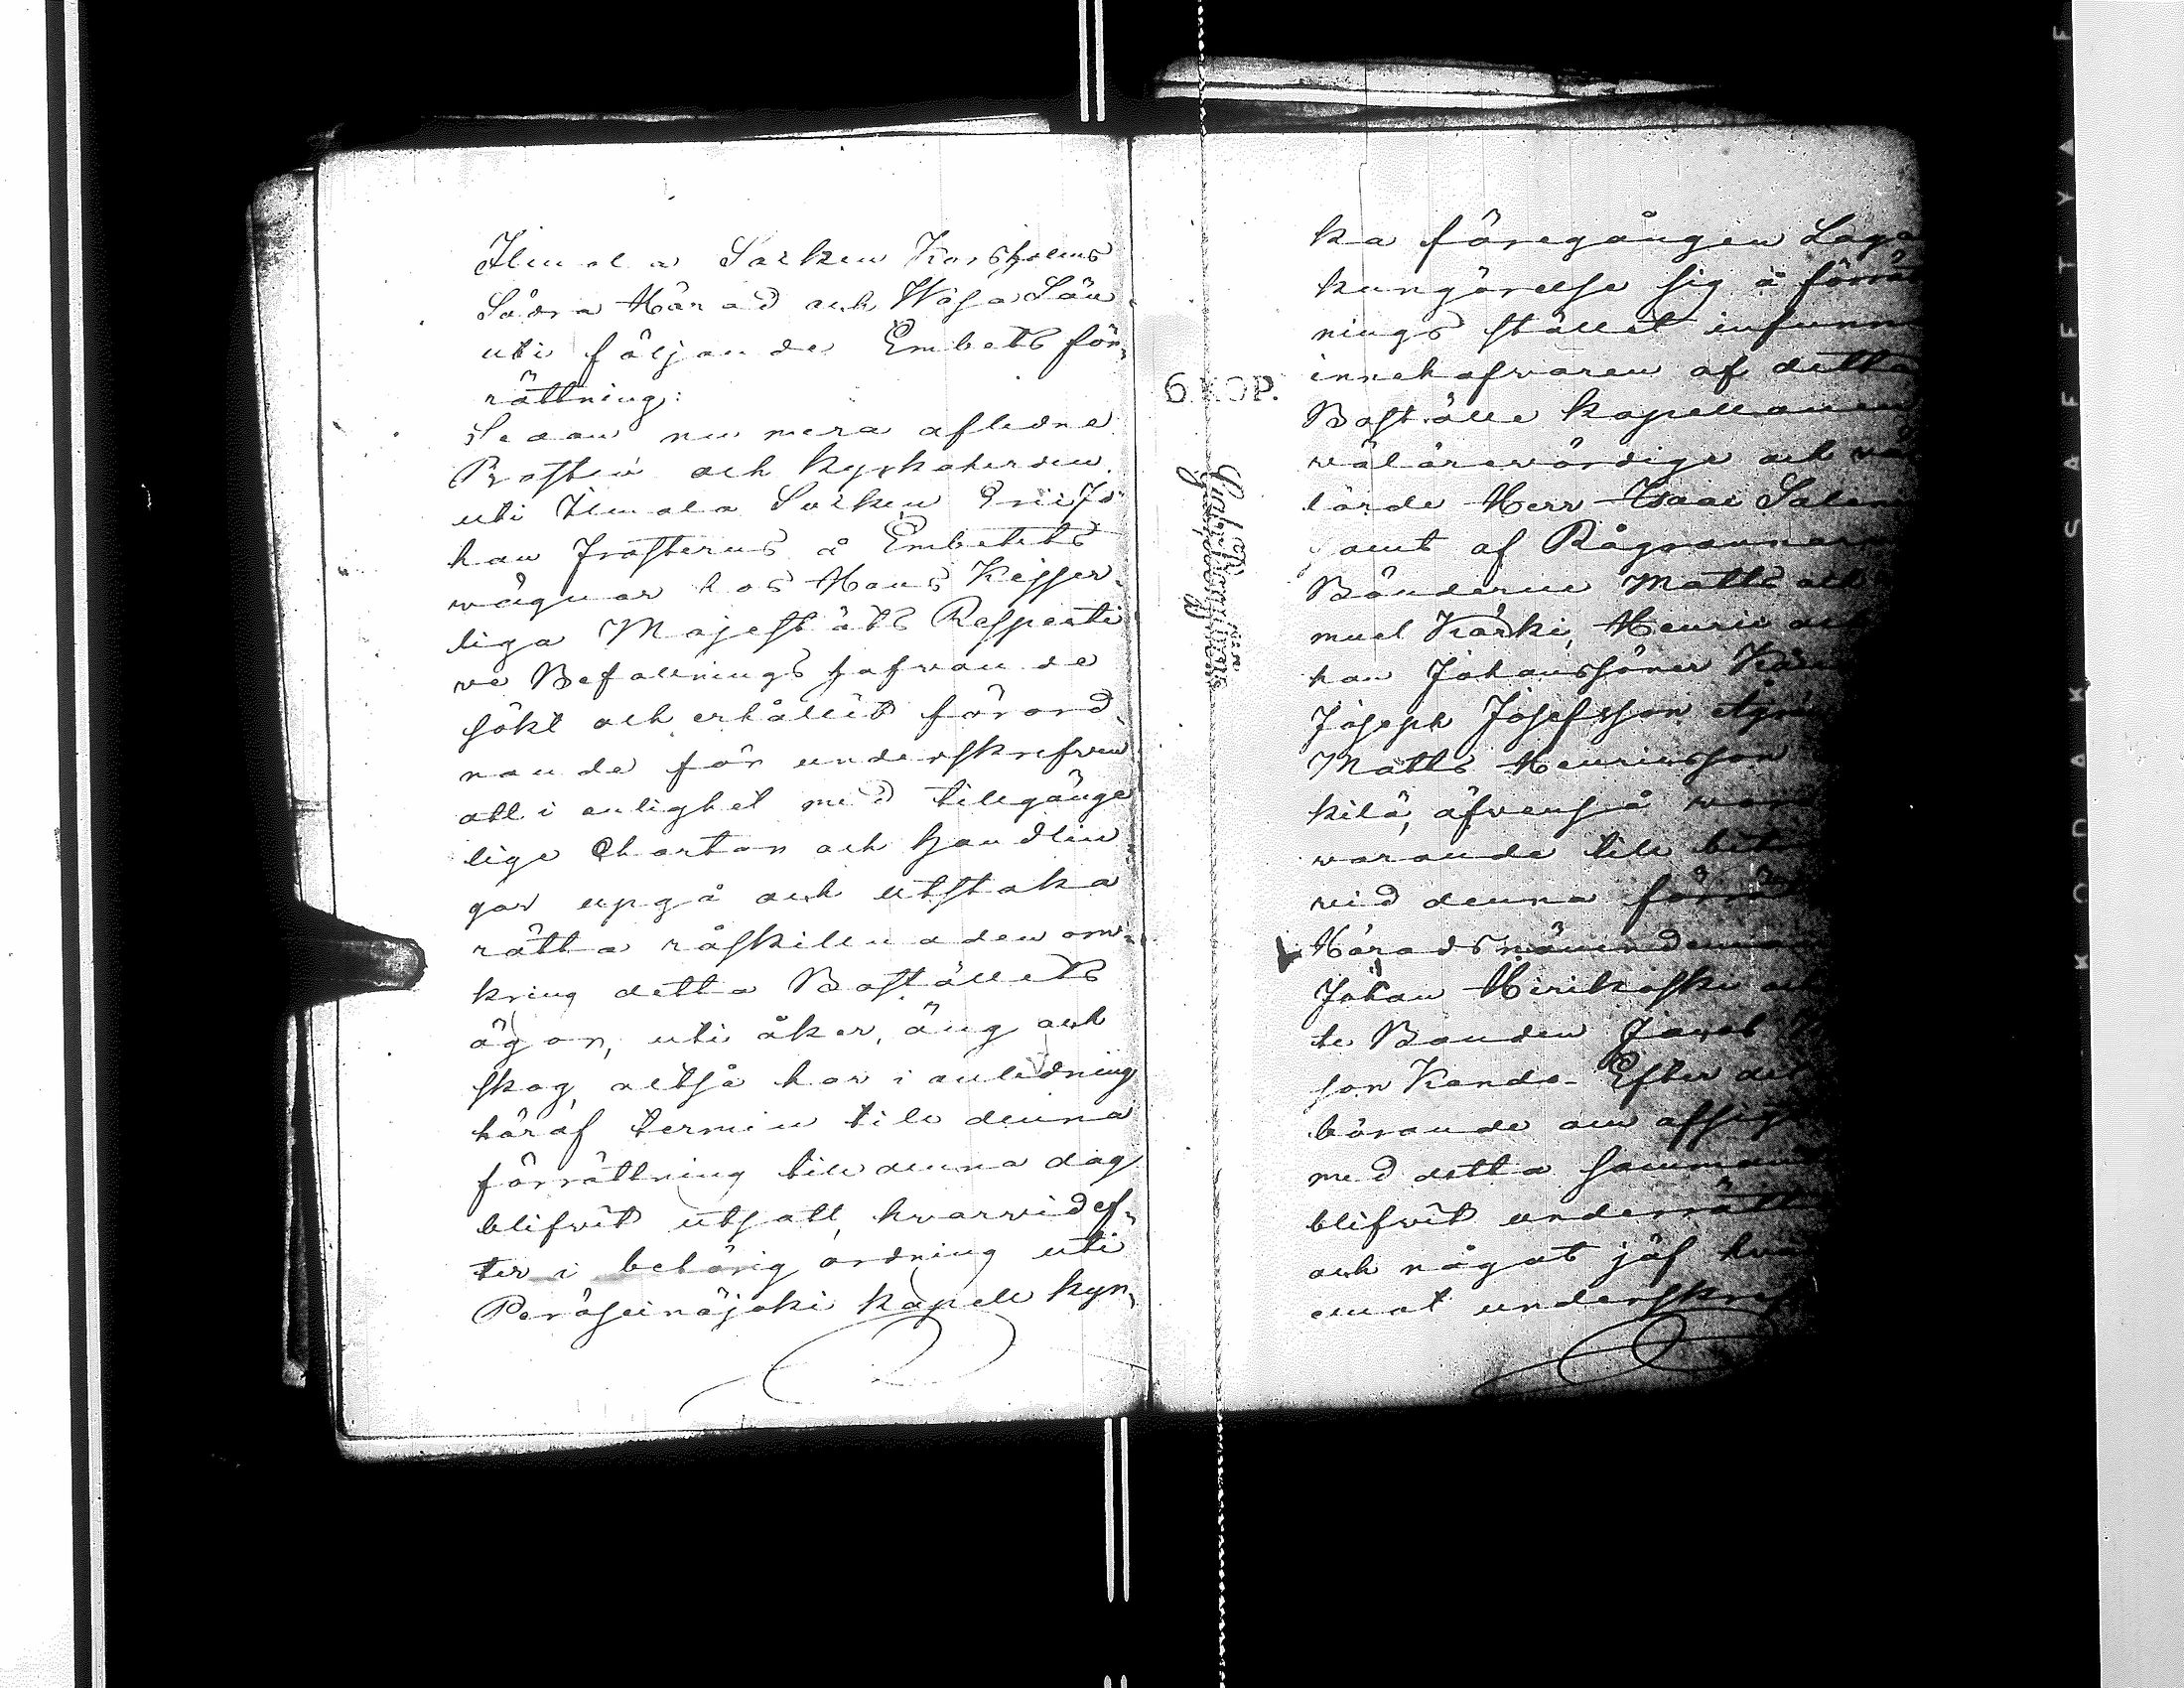 Ilmola Socken Korsholms
Södra Härad och Wasa Län
uti följande Embets för-
rättning:
Sedan nu mera aflidne
Prosten och Kyrkoherden
uti Ilmola Socken Eric Jo
han Frosterus å Embetets
vägnar hos Hans Kejser-
liga Majestäts Respecti
ve Befallningshafvande
sökt och erhållit förord-
nande för underskrefven
att i enlighet med tillgänge
lige Chartor och handlin-
gar upgå och utstaka
rätta råskillnaden om-
kring detta Boställets
ägor, uti åker, äng och
skog, altså har i anledning
häraf termin till denna
förrättning till denna dag
blifvit utsatt, hvarvid ef-
ter i behörig ordning uti
Peräseinäjoki kapell kyr-
6 KOP.
ka föregången Laga
kungörelse sig å förrä
nings stället infunn
innehafvaren af detta
Boställe kapellanen
välärevördige och väl
lärde Herr Isaac Salen
samt af Rågrannarn
Bönderne Matts och
muel Kärki, Henric och
han Johanssöner
Joseph Josefsson
Matts Henricsson
kilä, äfvenså
varande till
vid denna förrä
Häradsnämndemannen
Johan Hirikoski och
te Bonden Jacob
son Kando. Efter det
börande om afsig
med detta samman
blifvit underrätt
och något jäf
emot underskref